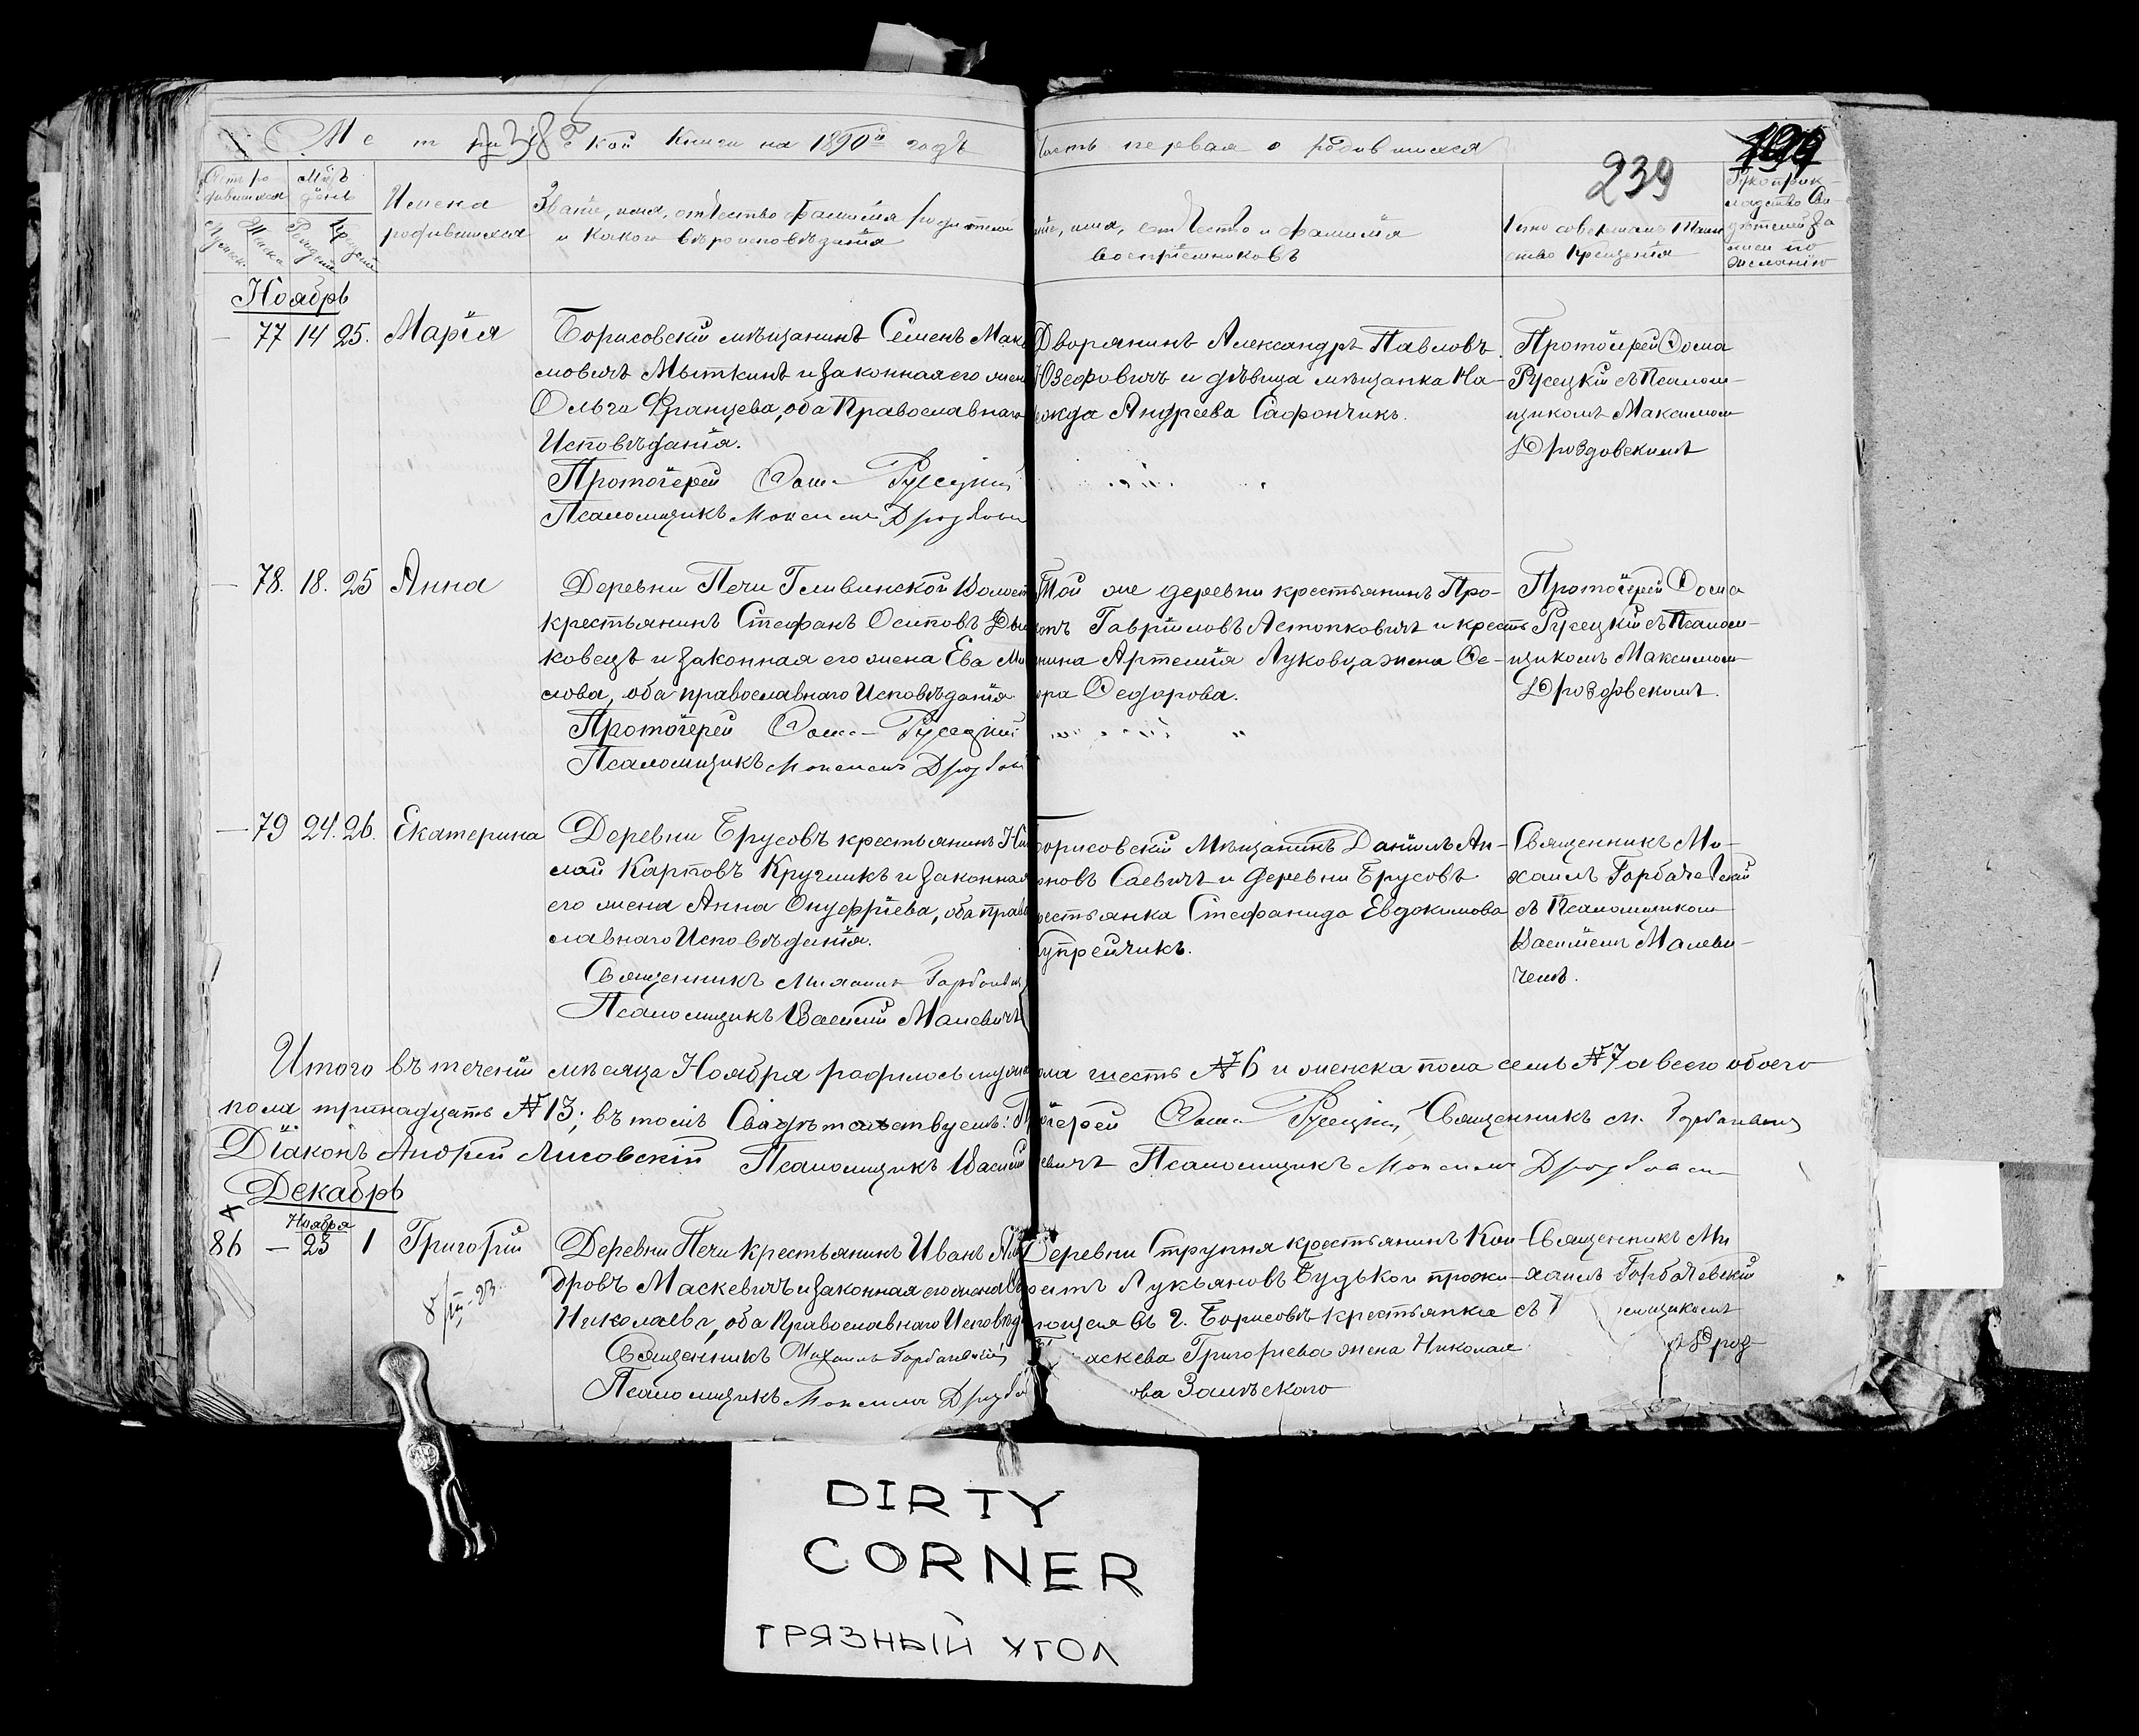 Мет рической книги на 1890й годъ
Часть первая о родившихся
239
Счетъ ро
дившихся
Мѣс.
день
Мужеск.
Женска
Рожденія
Крещенія
Имена
родившихся
Званіе, имя, отчество фамилія родителей
и какого вѣроисповѣданія
имя, отчество и фамилія
воспріемниковъ
Кто совершалъ таин
ство крещенія
Рукоприк-
ладство сви-
дѣтелей за
писи по
желанію
Ноябрь
— 77 14 25. Марія
Борисовскій мѣщанинъ Семенъ Мак
мовичъ Мыткинъ и законная его жен
Ольга Францева, оба Православнаго
Исповѣданія.
Протоіерей Ѳома Русецкій
Псаломщикъ Максимъ Дроздовс
Дворянинъ Александръ Павловъ
Юзефовичъ и дѣвица мѣщанка На-
ежда Андреева Сафончикъ.
Протоіерей Ѳома
Русецкій съ Псалом-
щикомъ Максимом
Дроздовскимъ
— 78. 18. 25 Анна
Деревни Печи Гливинской Волост
крестьянинъ Стефанъ Осиповъ
ковецъ и законная его жена Ева
мова, оба православнаго Исповѣданія
Протоіерей Ѳома Русецкій
Псаломщикъ Максимъ Дроздовс
Той же деревни крестьянинъ Про-
копъ Гавріиловъ Астапковичъ и кресть
янина Артемія Луковца жена Ѳе-
ора Ѳедорова.
Протоіерей Ѳома
Русецкій съ Псалом-
щикомъ Максимом
Дроздовскимъ.
— 79 24. 26. Екатерина
Деревни Брусовъ крестьянинъ Ни
лай Карповъ Кругликъ и законная
его жена Анна Онуфріева, оба право
славнаго Исповѣданія.
Священникъ Михаилъ Горбачевск
Псаломщикъ Василій Малевичъ
Борисовскій Мѣщанинъ Даніилъ Ан-
оновъ Саевичъ и деревни Брусовъ
рестьянка Стефанида Евдокимова
упрейчикъ.
Священникъ Ми-
хаилъ Горбачевскій
съ Псаломщиком
Василіемъ Малеви-
чемъ.
Итого въ теченіи мѣсяца Ноября родилось муж ола шесть № 6 и женска пола семь № 7 а всего обоего
пола тринадцать № 13; въ томъ Свидѣтельствуемъ: Протоіерей Ѳома Русецкій, Священникъ М. Горбачевскій
Діаконъ Андрей Лисовскій Псаломщикъ Васил евичъ Псаломщикъ Максимъ Дроздовскі
Декабрь
Ноября
86 — 23 1 Григорій
Деревни Печи крестьянинъ Иванъ
дровъ Маскевичъ и законная его жена
Николаева, оба Православнаго Исповѣд
Священникъ Михаилъ Горбачевскій
Псаломщикъ Максимъ Дроздо
Деревни Струпня крестьянинъ Кон-
ратъ Лукьяновъ Будько и прожи-
ющая въ г. Борисовѣ крестьянка
аскева Григорьева жена Николая
ова Замѣскаго
Священникъ Ми
хаилъ Горбачевскій
съ омщикомъ
Дроз-
DIRTY
CORNER
ГРЯЗНЫЙ УГОЛ